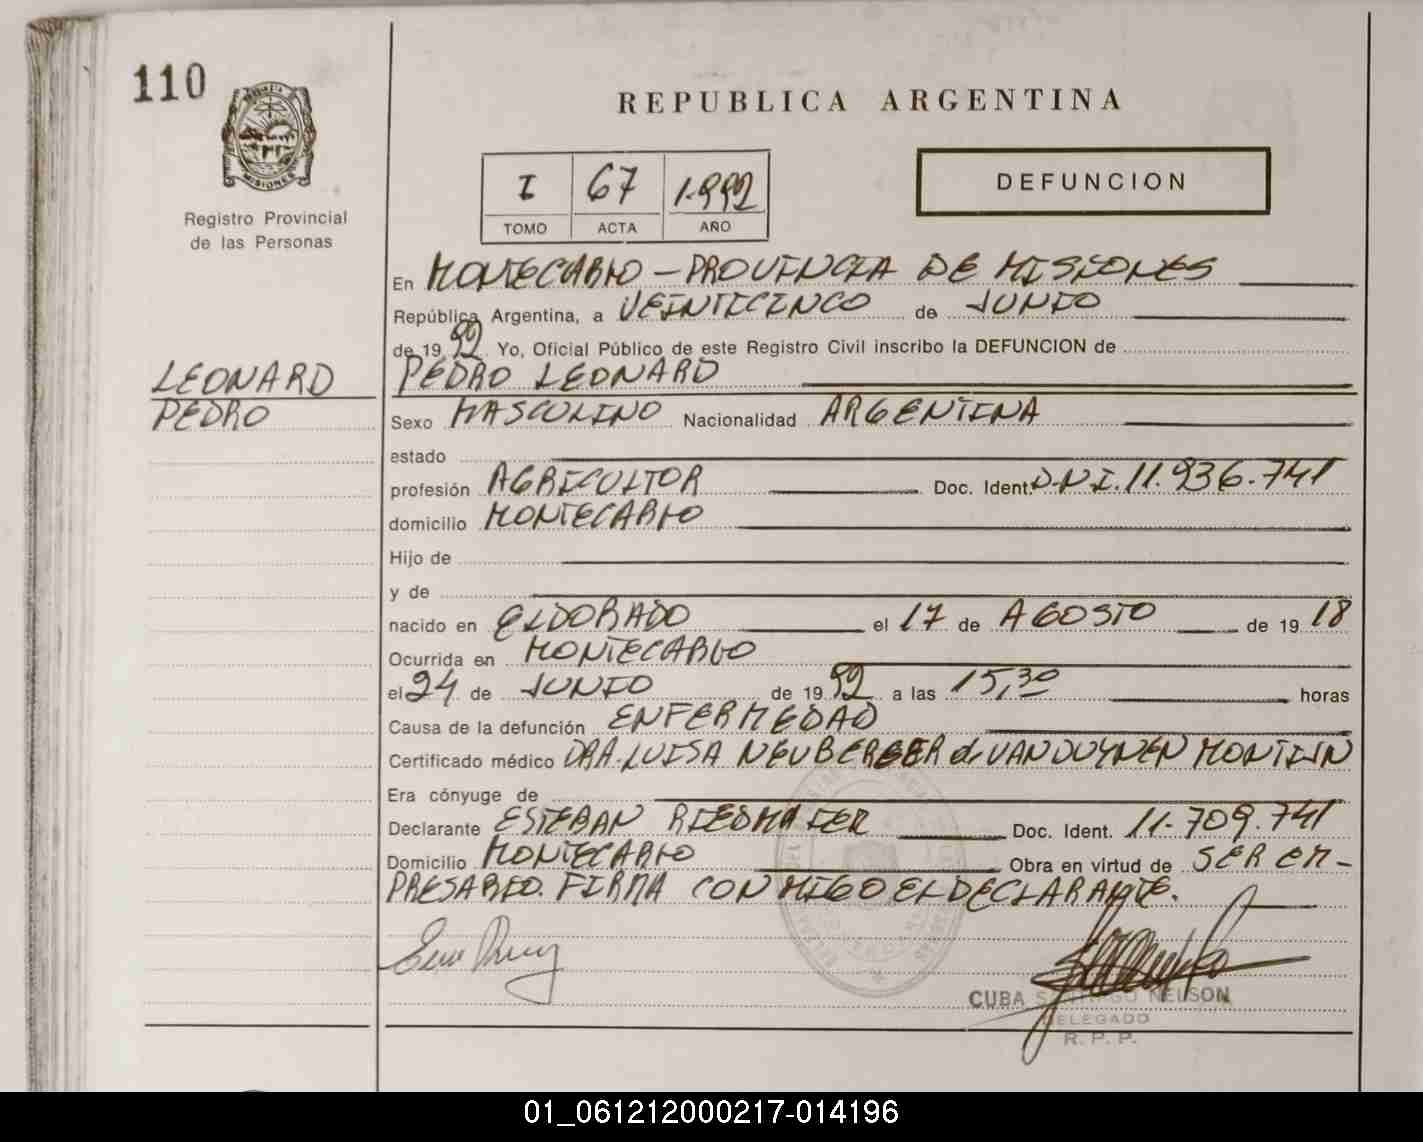 110
REPUBLICA ARGENTINA
I 67 1.992
TOMO ACTA AÑO
DEFUNCION
MISIONES
Registro Provincial
de las Personas
En MONTECARLO - PROVINCIA DE MISIONES
República Argentina, a VEINTICINCO de JUNIO
de 1992. Yo, Oficial Público de este Registro Civil inscribo la DEFUNCION de
LEONARD
PEDRO
PEDRO LEONARD
Sexo MASCULINO Nacionalidad ARGENTINA
estado
profesión AGRICULTOR Doc. Ident. D.N.I. 11.936.741
domicilio MONTECARLO
Hijo de
y de
nacido en ELDORADO el 17 de AGOSTO de 1918
Ocurrida en MONTECARLO
el 24 de JUNIO de 1992 a las 15,30 horas
Causa de la defunción ENFERMEDAD
Certificado médico DRA. LUISA NEUBERGER de VAN DUYNEN MONTIIN
Era cónyuge de
Declarante ESTEBAN RIEDMAIER Doc. Ident. 11.709.741
Domicilio MONTECARLO Obra en virtud de SER EM-
PRESARIO. FIRMA CONMIGO EL DECLARANTE.
CUBA SANTIAGO NELSON
DELEGADO
R. P. P.
01_061212000217-014196